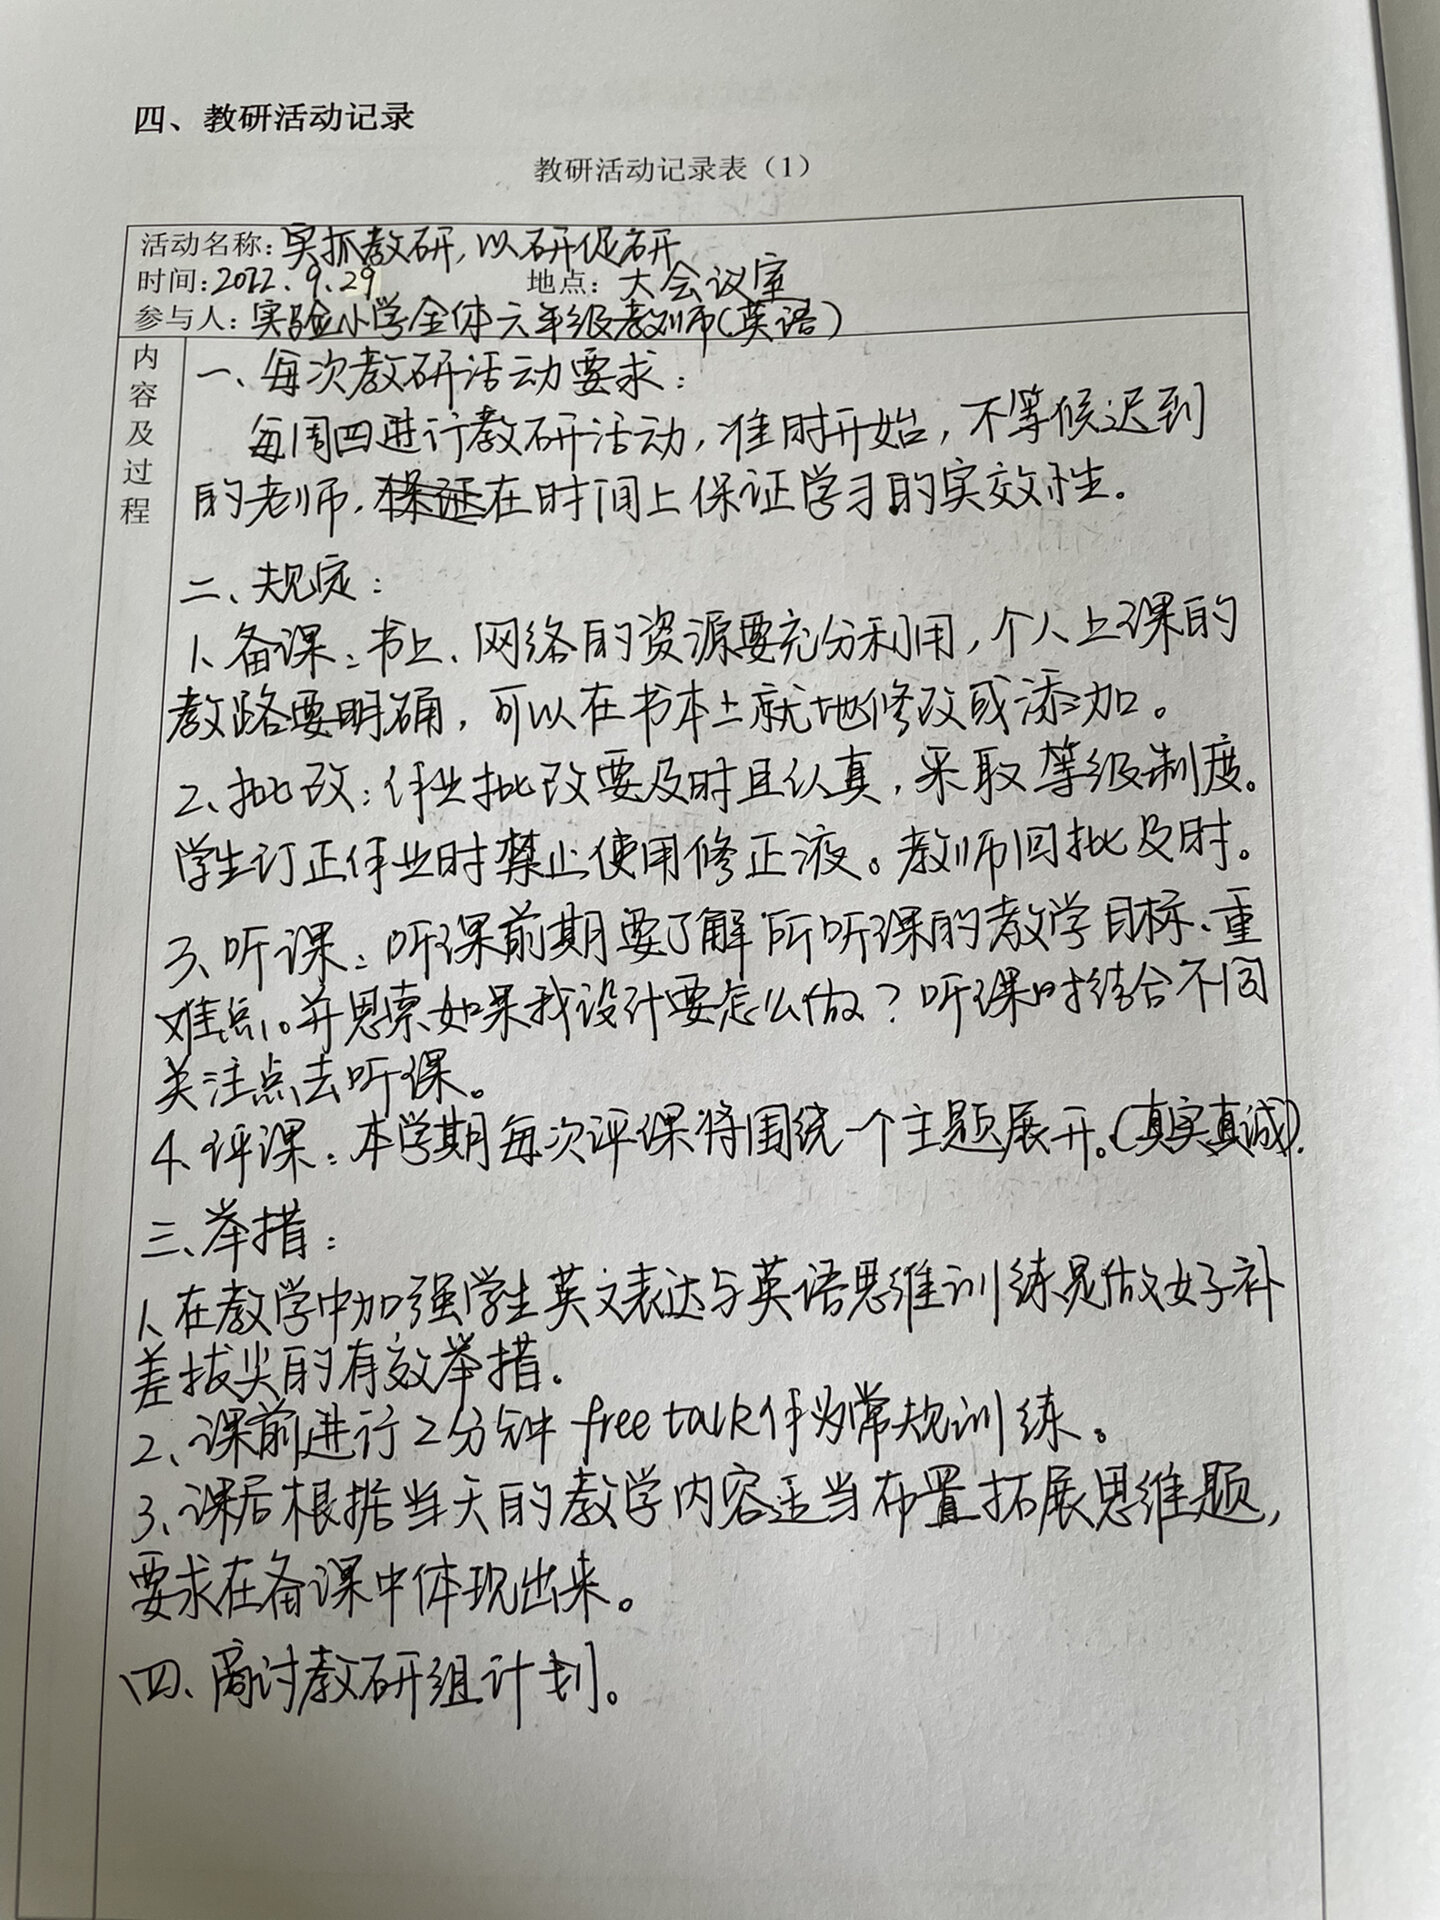 四、教研活动记录
教研活动记录表（1）
活动名称：实抓教研，以研促研
时间：2022.9.29 地点：大会议室
参与人：实验小学全体六年级教师（英语）
内容及过程
一、每次教研活动要求：
每周四进行教研活动，准时开始，不等候迟到
的老师，在时间上保证学习的实效性。
二、规定：
1、备课：书上、网络的资源要充分利用，个人上课的
教路要明确，可以在书本上就地修改或添加。
2、批改：作业批改要及时且认真，采取等级制度。
学生订正作业时禁止使用修正液。教师回批及时。
3、听课：听课前期要了解所听课的教学目标、重
难点。并思索如果我设计要怎么做？听课时结合不同
关注点去听课。
4、评课：本学期每次评课将围绕一个主题展开。（真实真诚）.
三、举措：
1、在教学中加强学生英文表达与英语思维训练是做好补
差拔尖的有效举措.
2、课前进行2分钟free talk作为常规训练。
3、课后根据当天的教学内容适当布置拓展思维题，
要求在备课中体现出来。
四、商讨教研组计划。